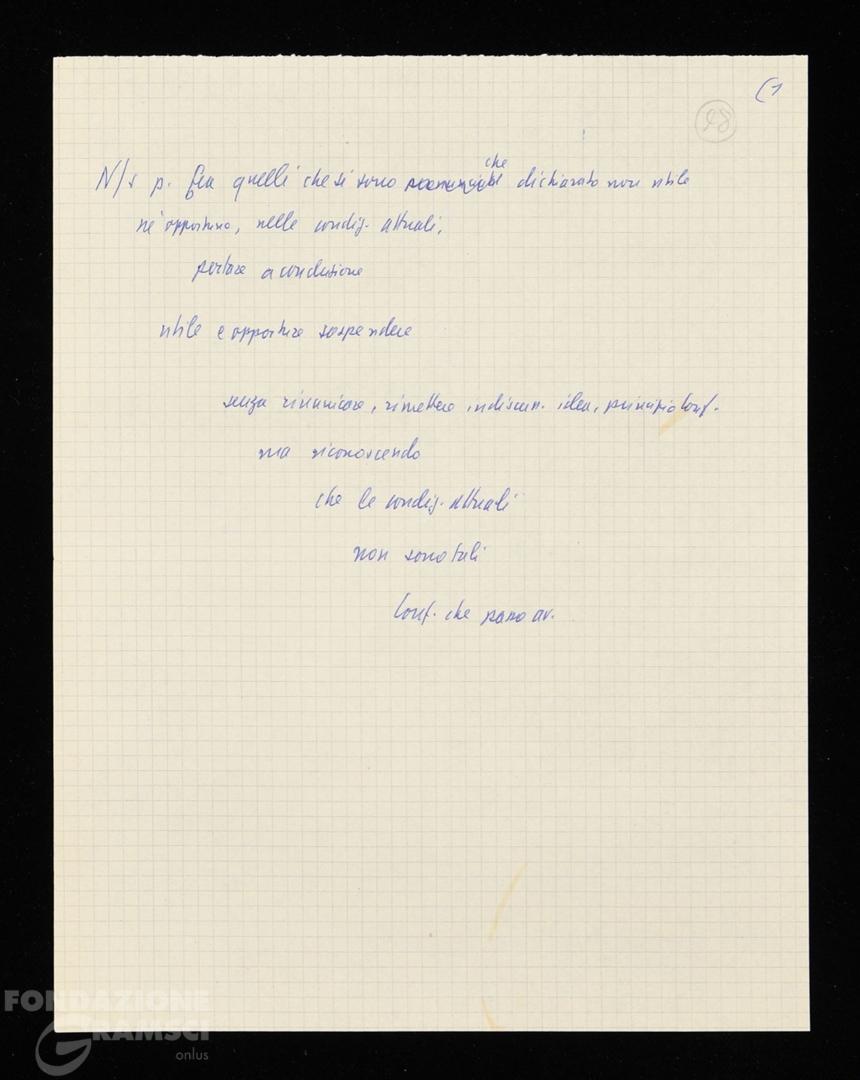 (1
98
N/s p. fra quelli che si sono che dichiarato non utile
nè opportuno, nelle condiz. attuali,
portare a conclusione
utile e opportuno sospendere
senza rinunciare, rimettere in discuss. idea, principio Conf.
ma riconoscendo
che le condiz. attuali
non sono tali
Conf. che passo av.
FONDAZIONE
GRAMSCI
onlus